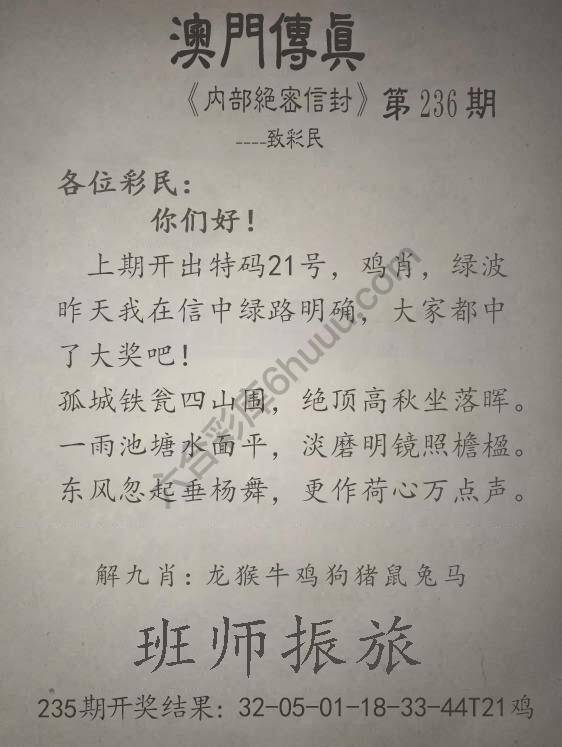 澳門傳真
《内部絕密信封》第236期
----致彩民
各位彩民：
你们好！
上期开出特码21号，鸡肖，绿波
昨天我在信中绿路明确，大家都中
了大奖吧！
孤城铁瓮四山围，绝顶高秋坐落晖。
一雨池塘水面平，淡磨明镜照檐楹。
东风忽起垂杨舞，更作荷心万点声。
六合彩库6huuu.com
解九肖：龙猴牛鸡狗猪鼠兔马
班师振旅
235期开奖结果：32-05-01-18-33-44T21鸡